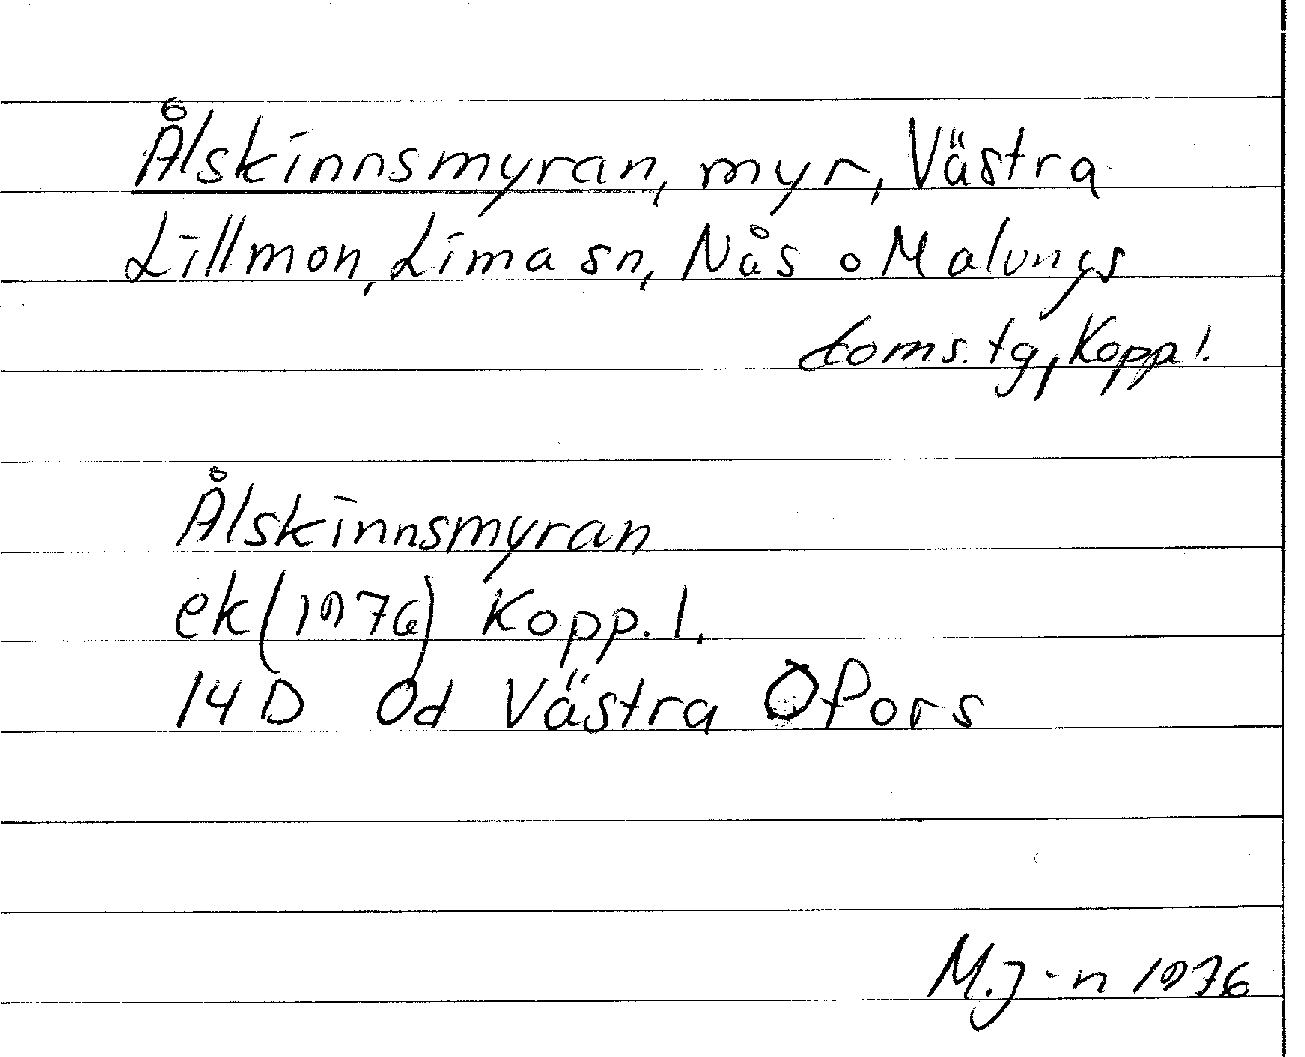 Ålskinnsmyran, myr, Västra
Lillmon, Lima sn, Nås o Malungs
doms. tg, Kopp l.
Ålskinnsmyran
ek (1976) Kopp. l.
14 D 0d Västra Ofors
M.J-n 1976